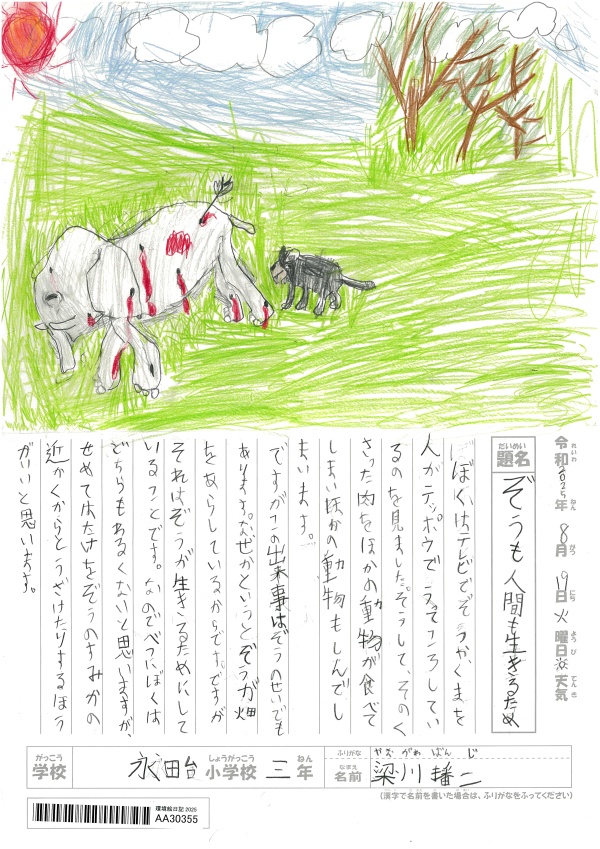 令和2025年8月19日火曜日天気
れいわ ねん がつ にち ようび てんき
だいめい
題名 ぞうも人間も生きるため
ぼくはテレビでぞうがくまを
人がテッポウでうってころしてい
るのを見ました。そうして、そのく
さった肉をほかの動物が食べて
しまいほかの動物もしんでし
まいます。
ですがこの出来事はぞうのせいでも
あります。なぜかというとぞうが畑
をあらしているからです。ですが
それはぞうが生きるためにして
いることです。なのでべつにぼくは
どちらもわるくないと思いますが、
せめてはたけをぞうのすみかの
近かくからとうざけたりするほう
がいいと思います。
がっこう しょうがっこう ねん
学校 永田台小学校 三年
ふりがな やながわ ばん じ
なまえ
名前 梁川 播二
(漢字で名前を書いた場合は、ふりがなをふってください)
環境絵日記 2025
AA30355